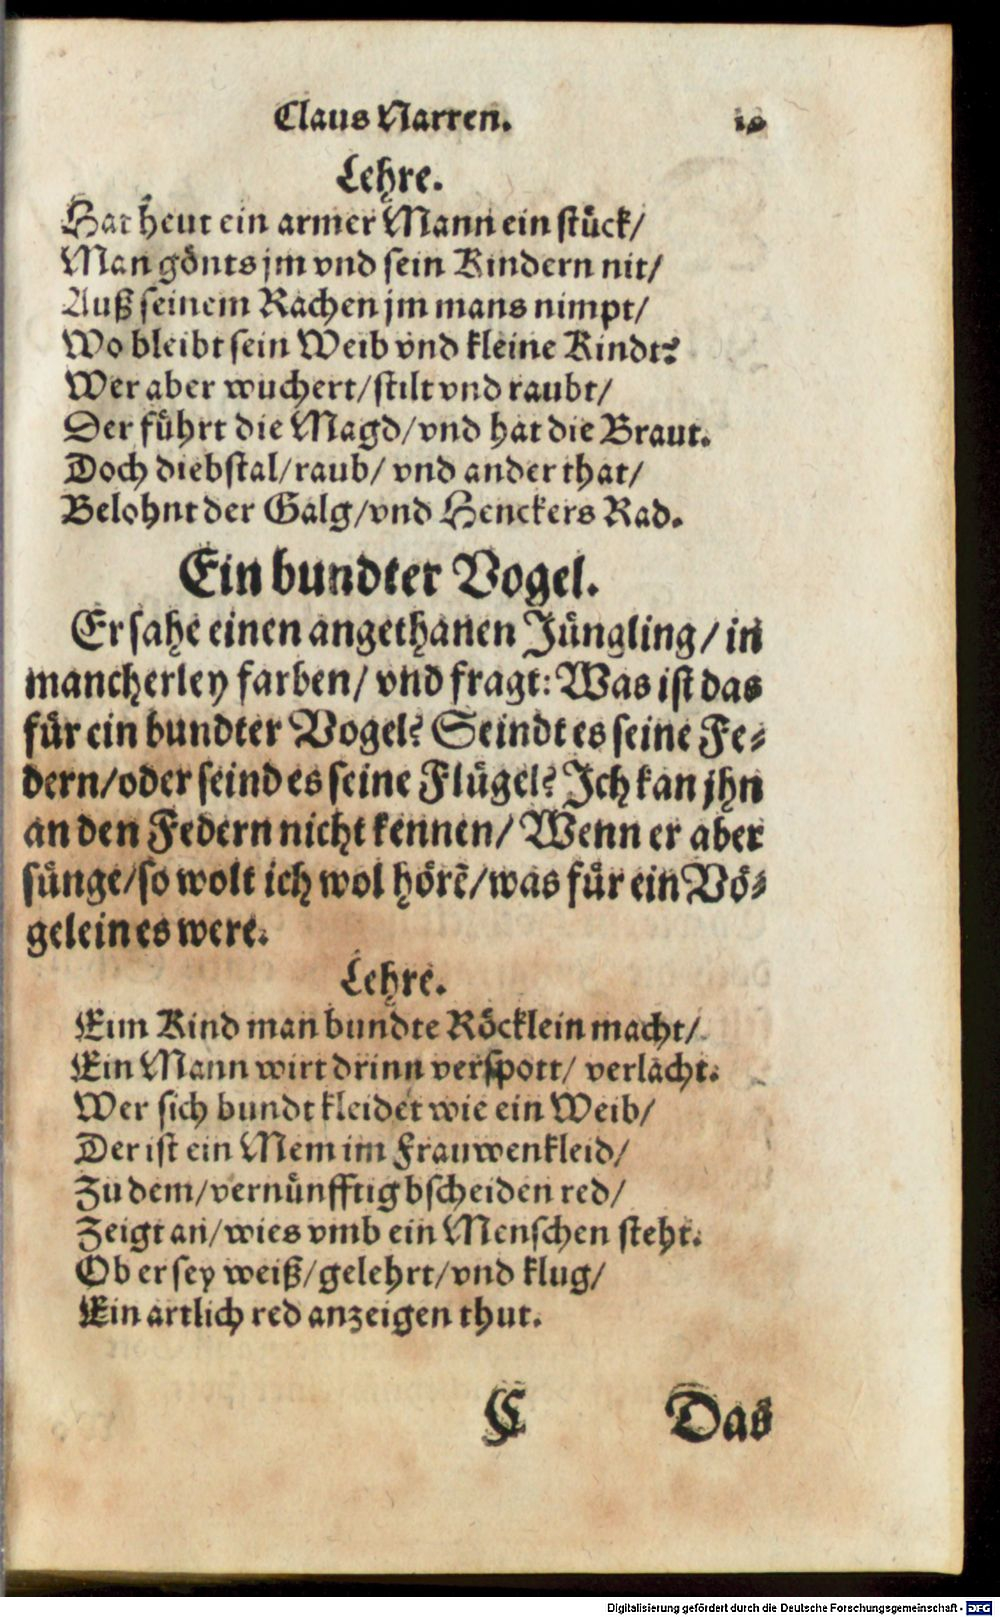 Claus Narren.
Lehre.
Hat heut ein armer Mann ein stück/
Man gönts jm vnd sein Kindern nit/
Auß seinem Rachen jm mans nimpt/
Wo bleibt sein Weib vnd kleine Kindt?
Wer aber wuchert/stilt vnd raubt/
Der führt die Magd/vnd hat die Braut.
Doch diebstal/raub/ vnd ander that/
Belohnt der Galg/vnd Henckers Rad.
Ein bundter Vogel.
Er sahe einen angethanen Jüngling/ in
mancherley farben/ vnd fragt: Was ist das
für ein bundter Vogel? Seindt es seine Fe-
dern/oder seind es seine Flügel? Ich kan jhn
an den Federn nicht kennen/ Wenn er aber
sünge/so wolt ich wol hörē/was für ein Vö-
gelein es were.
Lehre.
Eim Kind man bundte Röcklein macht/
Ein Mann wirt drinn verspott/ verlacht.
Wer sich bundt kleidet wie ein Weib/
Der ist ein Mem im Frauwenkleid/
Zu dem/vernünfftig bscheiden red/
Zeigt an/wies vmb ein Menschen steht.
Ob er sey weiß/gelehrt/vnd klug/
Ein artlich red anzeigen thut.
C Das
Digitalisierung gefördert durch die Deutsche Forschungsgemeinschaft - DFG